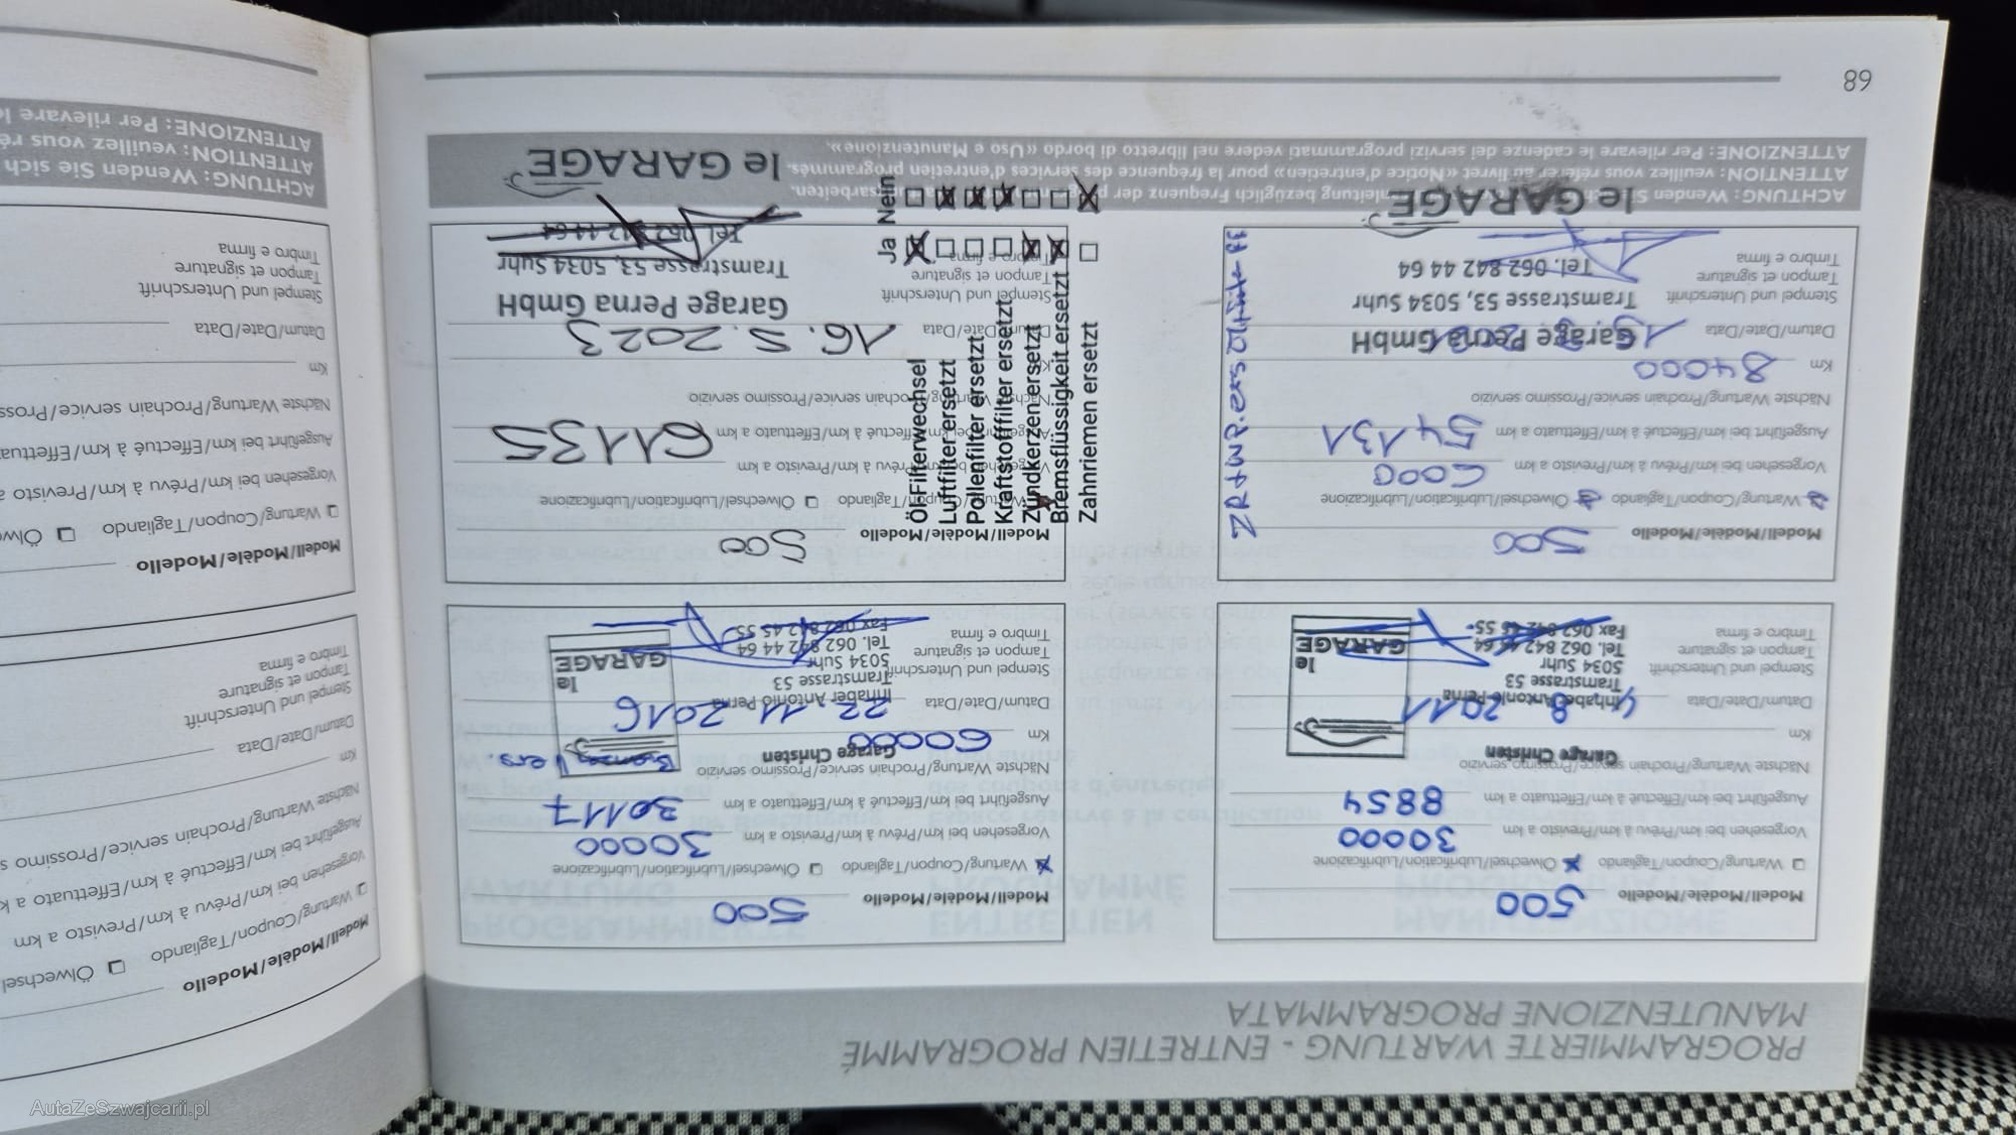 PROGRAMMIERTE WARTUNG - ENTRETIEN PROGRAMMÉ
MANUTENZIONE PROGRAMMATA
Modell/Modèle/Modello 500
Wartung/Coupon/Tagliando Ölwechsel/Lubrification/Lubrificazione
Vorgesehen bei km/Prévu à km/Previsto a km 30000
Ausgeführt bei km/Effectué à km/Effettuato a km 8854
Nächste Wartung/Prochain service/Prossimo servizio
Garage Christen
Km
Datum/Date/Data 4 8 2011
Inhaber Antonio Perna
Tramstrasse 53
5034 Suhr
Tel. 062 842 44 64
Fax 062 842 45 55
le
GARAGE
Stempel und Unterschrift
Tampon et signature
Timbro e firma
Modell/Modèle/Modello 500
Wartung/Coupon/Tagliando Ölwechsel/Lubrification/Lubrificazione
Vorgesehen bei km/Prévu à km/Previsto a km 30000
Ausgeführt bei km/Effectué à km/Effettuato a km 30117
Nächste Wartung/Prochain service/Prossimo servizio
Garage Christen
Km 60000
Datum/Date/Data 22.11 2016
Inhaber Antonio Perna
Tramstrasse 53
5034 Suhr
Tel. 062 842 44 64
Fax 062 842 45 55
le
GARAGE
Stempel und Unterschrift
Tampon et signature
Timbro e firma
Modell/Modèle/Modello 500
Wartung/Coupon/Tagliando Ölwechsel/Lubrification/Lubrificazione
Vorgesehen bei km/Prévu à km/Previsto a km 6000
Ausgeführt bei km/Effectué à km/Effettuato a km 54131
Nächste Wartung/Prochain service/Prossimo servizio
Km 84000
Datum/Date/Data
Garage Perna GmbH
Tramstrasse 53, 5034 Suhr
Tel. 062 842 44 64
le GARAGE
Stempel und Unterschrift
Tampon et signature
Timbro e firma
Modell/Modèle/Modello 500
Wartung/Coupon/Tagliando Ölwechsel/Lubrification/Lubrificazione
Vorgesehen bei km/Prévu à km/Previsto a km
Ausgeführt bei km/Effectué à km/Effettuato a km 61135
Nächste Wartung/Prochain service/Prossimo servizio
Km
Datum/Date/Data 16.5.2023
Garage Perna GmbH
Tramstrasse 53, 5034 Suhr
Tel. 062 842 44 64
le GARAGE
Stempel und Unterschrift
Tampon et signature
Timbro e firma
Ja Nein
Öl-Filterwechsel
Luftfilter ersetzt
Pollenfilter ersetzt
Kraftstofffilter ersetzt
Zündkerzen ersetzt
Bremsflüssigkeit ersetzt
Zahnriemen ersetzt
ATTENTION: veuillez vous référer au livret «Notice d'entretien» pour la fréquence des services d'entretien programmés.
ATTENZIONE: Per rilevare le cadenze dei servizi programmati vedere nel libretto di bordo «Uso e Manutenzione».
68
Modell/Modèle/Modello
Wartung/Coupon/Tagliando Ölwechsel
Vorgesehen bei km/Prévu à km/Previsto a km
Ausgeführt bei km/Effectué à km/Effettuato a k
Nächste Wartung/Prochain service/Prossimo s
Km
Datum/Date/Data
Stempel und Unterschrift
Tampon et signature
Timbro e firma
Modell/Modèle/Modello
Wartung/Coupon/Tagliando Ölw
Vorgesehen bei km/Prévu à km/Previsto a
Ausgeführt bei km/Effectué à km/Effettua
Nächste Wartung/Prochain service/Pross
Km
Datum/Date/Data
Stempel und Unterschrift
Tampon et signature
Timbro e firma
ACHTUNG: Wenden Sie sich
ATTENTION: veuillez vous ré
ATTENZIONE: Per rilevare l
AutaZeSzwajcarii.pl